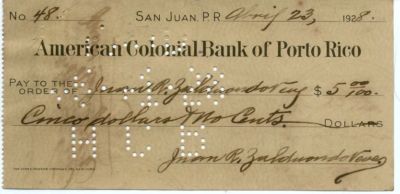 No. 48. SAN JUAN, P.R. April 23, 1928.
American Colonial Bank of Porto Rico
PAY TO THE
ORDER OF Juan R. Zalduondo $ 5 00/100.
Cinco dollars & No Cents. DOLLARS
Juan R. Zalduondo